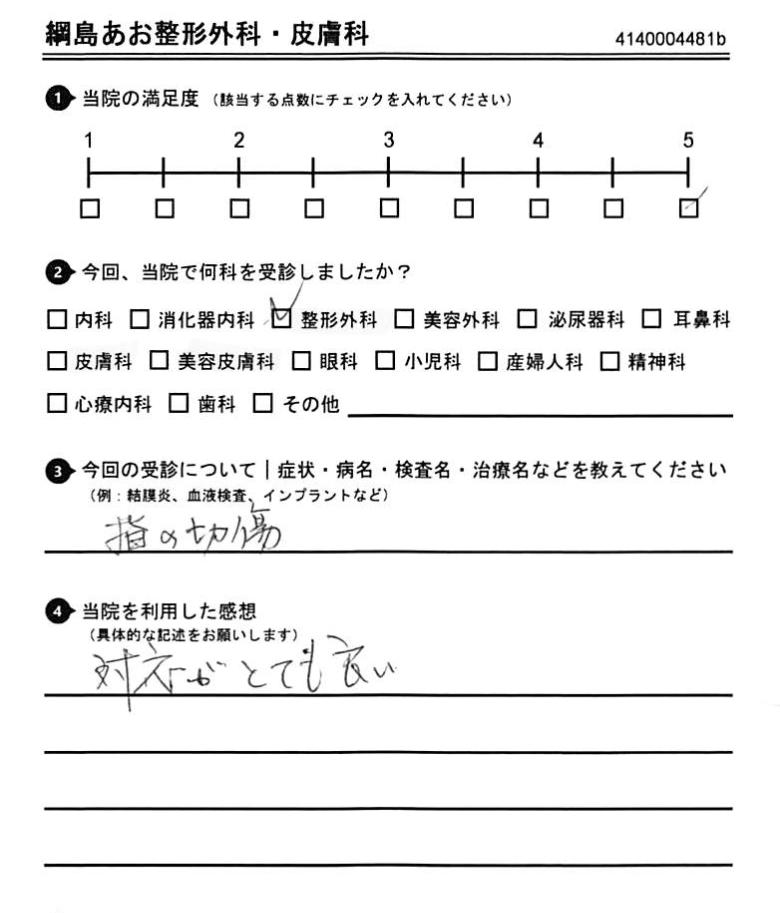 綱島あお整形外科・皮膚科 4140004481b
1 当院の満足度 (該当する点数にチェックを入れてください)
1 2 3 4 5
2 今回、当院で何科を受診しましたか？
内科 消化器内科 整形外科 美容外科 泌尿器科 耳鼻科
皮膚科 美容皮膚科 眼科 小児科 産婦人科 精神科
心療内科 歯科 その他
3 今回の受診について｜症状・病名・検査名・治療名などを教えてください
(例：結膜炎、血液検査、インプラントなど)
指の切傷
4 当院を利用した感想
(具体的な記述をお願いします)
対応がとても良い